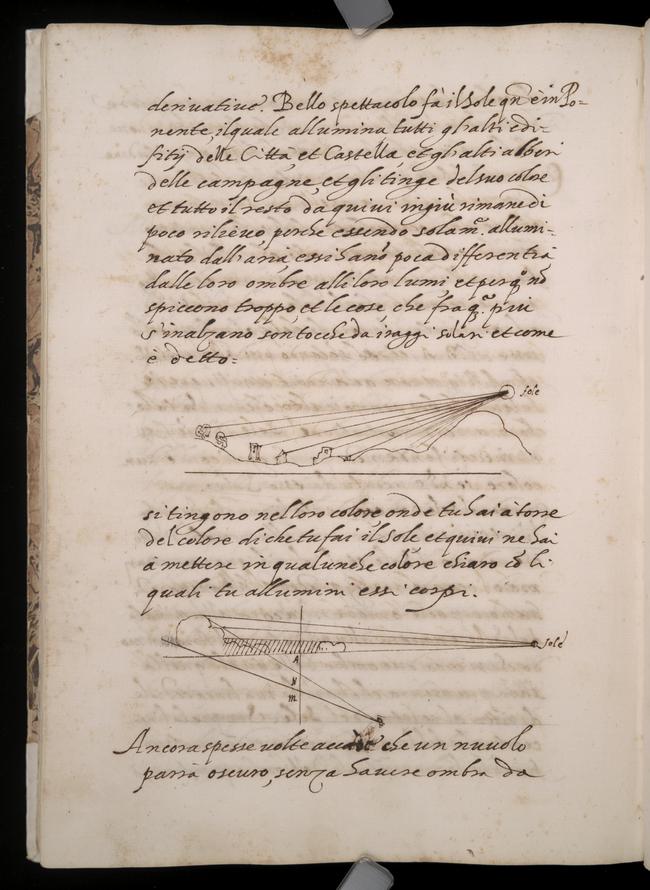 derivative. Bello spettacolo fà il Sole qñ è in Po=
nente, il quale allumina tutti gl'alti edi-
fitij delle Città, et Castella, et gl'alti alberi
delle campagne, et gli tinge del suo colore
et tutto il resto da quivi ingiù rimane di
poco rilievo, perche essendo solam.e allumi-
nato dall'aria, essi hanò poca differentia
dalle loro ombre alli loro lumi, et perq.o nõ
spiccono troppo, et le cose, che fra q.e più
s'inalzano son tocche da i raggi solari et come
è detto:
sole
si tingono nel loro colore onde tu hai à torre
del colore di che tu fai il Sole, et quivi ne hai
à mettere in qualunche colore chiaro cõ li
quali tu allumini essi corpi.
Sole
A
N
m
Ancora spesse volte accade che un nuvolo
parrà oscuro, senza havere ombra da